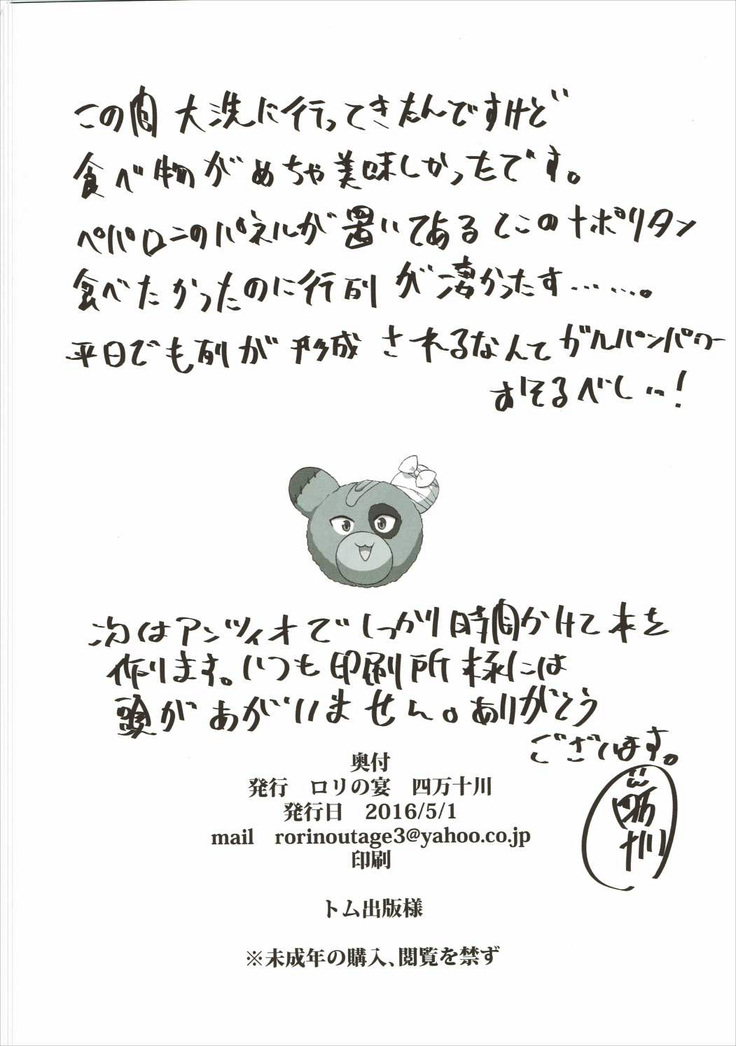 この間 大洗に行ってきたんですけど
食べ物がめちゃ美味しかったです。
ペパロニのパネルが置いてあるとこのナポリタン
食べたかったのに行列が凄かったす……。
平日でも列が形成されるなんてガルパンパワー
おそるべしッ!
次はアンツィオでしっかり時間かけて本を
作ります。いつも印刷所様には
頭があがいません。ありがとう
ございます。
四万十川
奥付
発行 ロリの宴 四万十川
発行日 2016/5/1
mail rorinoutage3@yahoo.co.jp
印刷
トム出版様
※未成年の購入、閲覧を禁ず